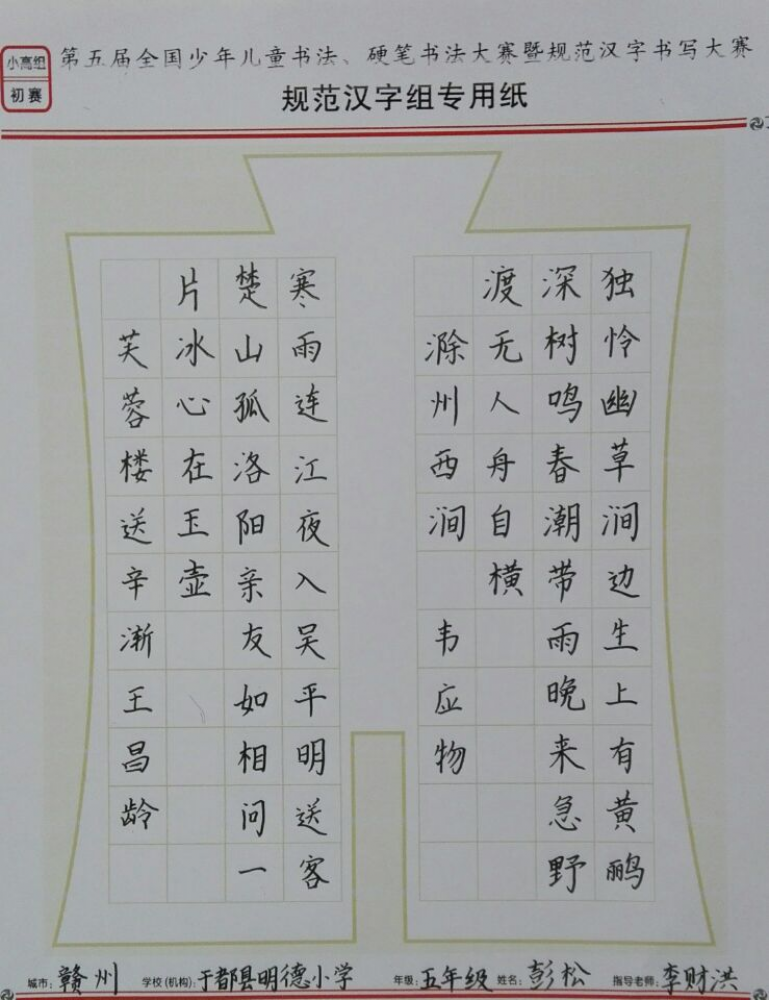 小高组
初赛
第五届全国少年儿童书法、硬笔书法大赛暨规范汉字书写大赛
规范汉字组专用纸
独怜幽草涧边生上有黄鹂
深树鸣春潮带雨晚来急野
渡无人舟自横
滁州西涧 韦应物
寒雨连江夜入吴平明送客
楚山孤洛阳亲友如相问一
片冰心在玉壶
芙蓉楼送辛渐王昌龄
城市：赣州 学校(机构)：于都县明德小学 年级：五年级 姓名：彭松 指导老师：李财洪